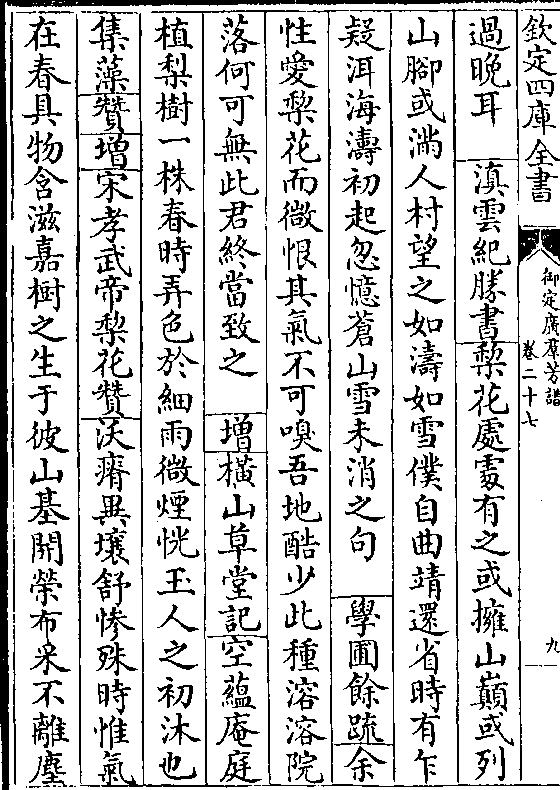 欽定四庫全書
御定廣羣芳譜
卷二十七
九
過晚耳　滇雲紀勝書梨花處處有之或擁山巔或列
山腳或滿人村望之如濤如雪僕自曲靖還省時有乍
疑洱海濤初起忽憶蒼山雪未消之句　學圃餘疏余
性愛梨花而微恨其氣不可嗅吾地酷少此種溶溶院
落何可無此君終當致之　增橫山草堂記空蘊庵庭
植梨樹一株春時弄色於細雨微煙恍玉人之初沐也
集藻贊增宋孝武帝梨花贊沃瘠異壤舒慘殊時惟氣
在春具物含滋嘉樹之生于彼山基開榮布采不離塵